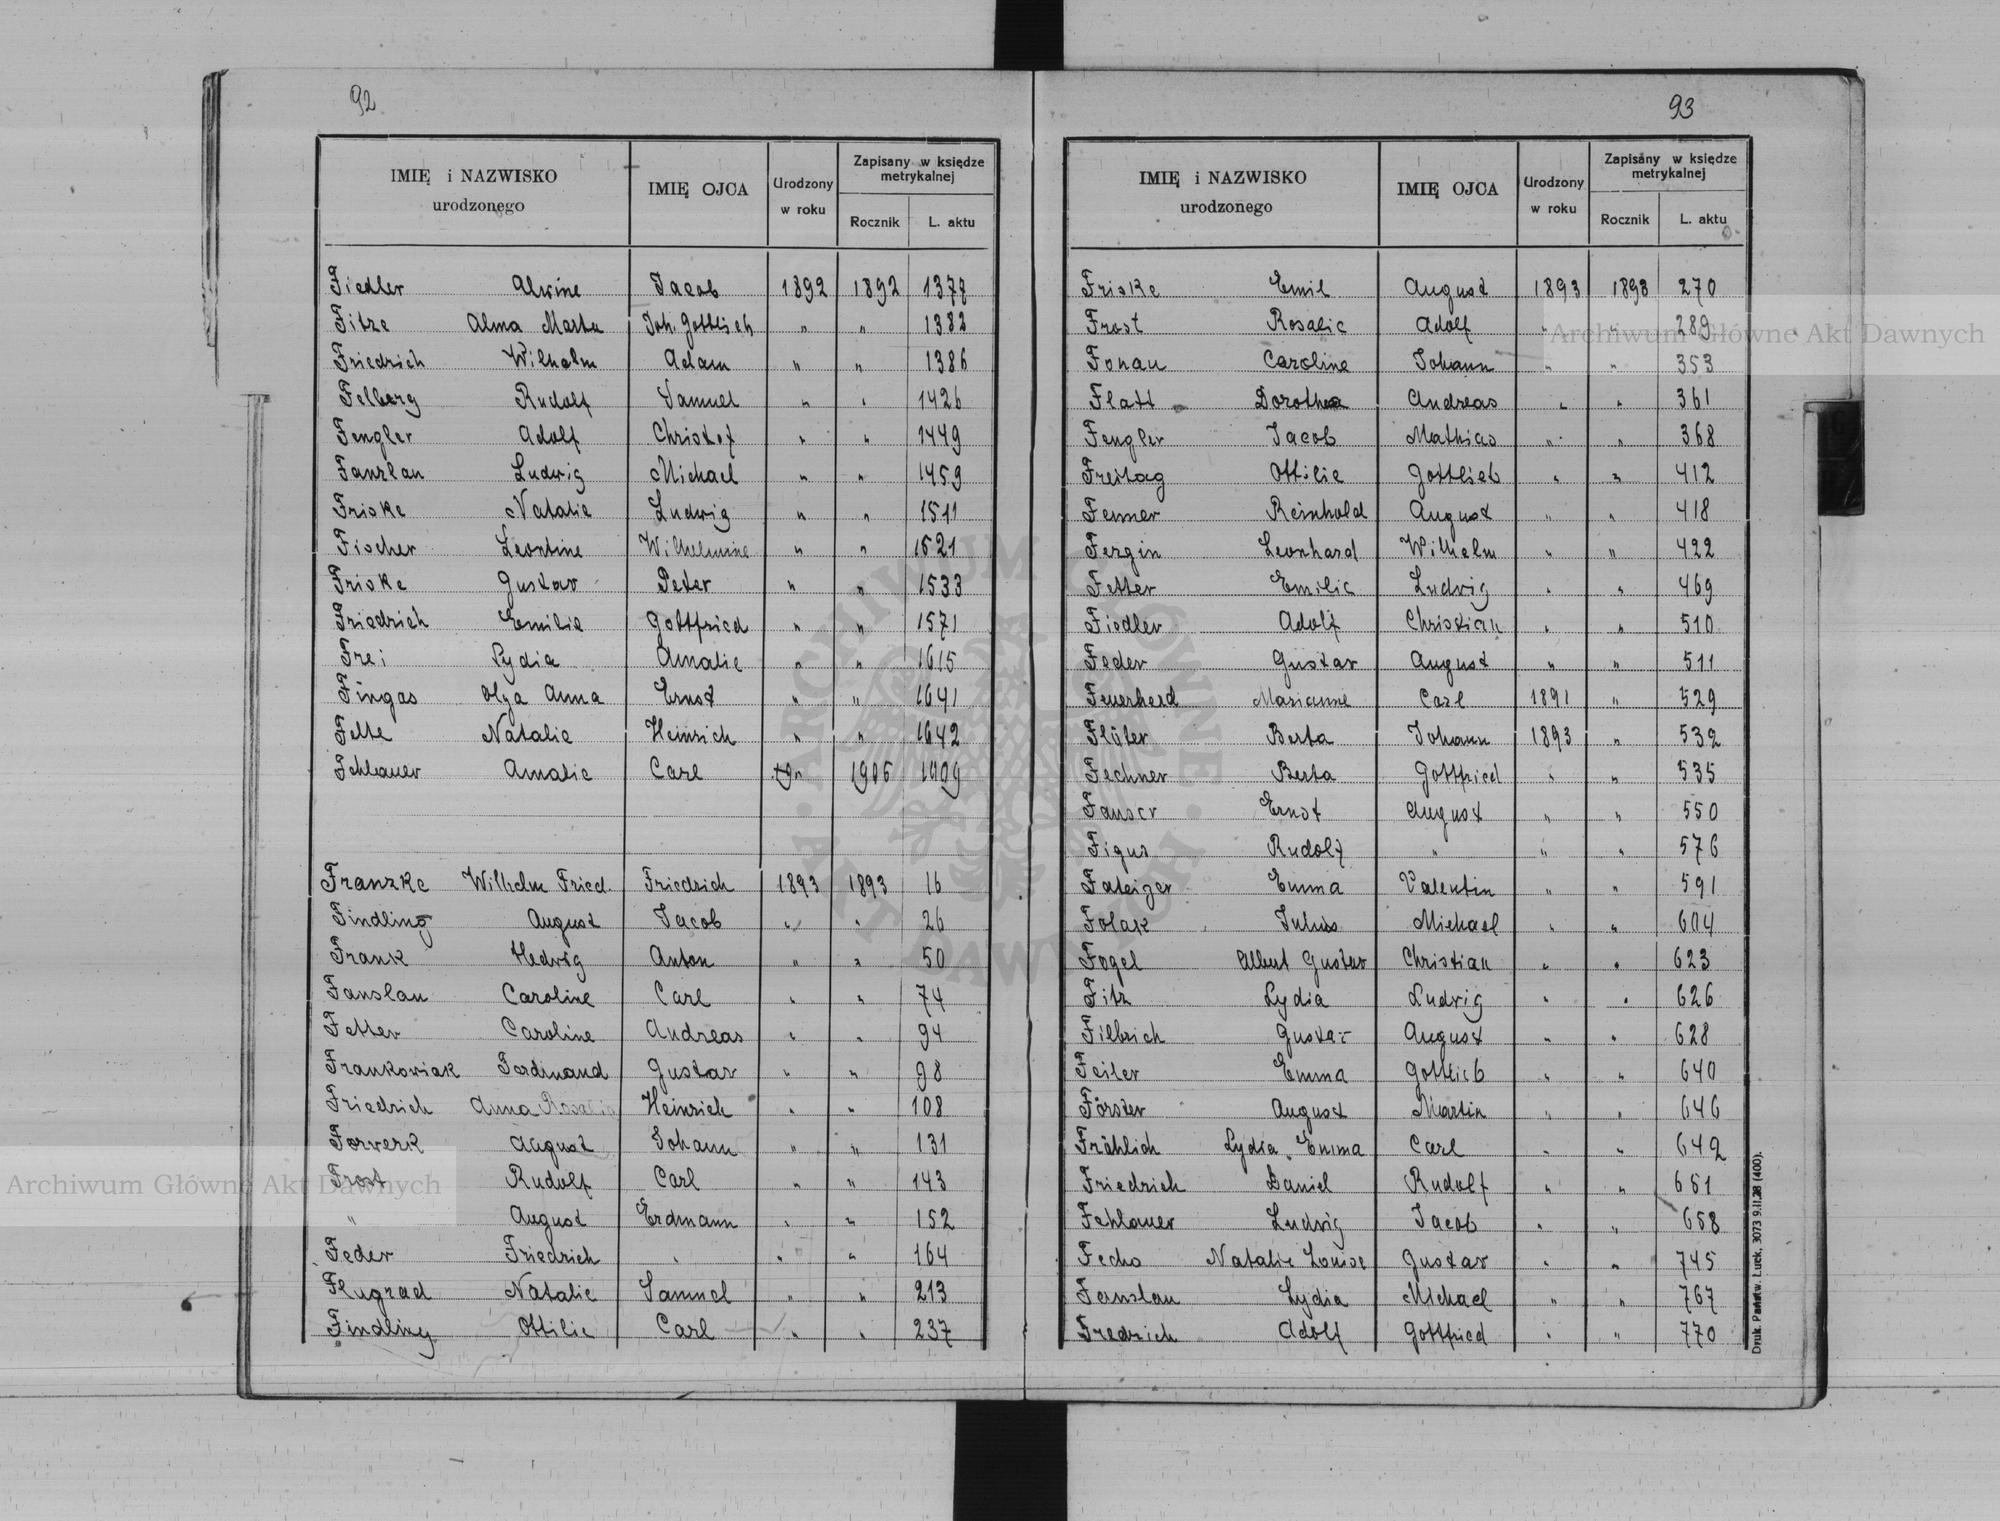 92
IMIĘ i NAZWISKO urodzonego IMIĘ OJCA Urodzony w roku Zapisany w księdze metrykalnej Rocznik L. aktu
Fiedler Alwine Jacob 1892 1892 1378
Fitze Alma Marta Joh. Gottlieb " " 1382
Friedrich Wilhelm Adam " " 1386
Felberg Rudolf Samuel " " 1426
Fengler Adolf Christof " " 1449
Fanzlau Ludwig Michael " " 1459
Friske Natalie Ludwig " " 1511
Fischer Leontine Wilhelmine " " 1521
Friske Gustav Peter " " 1533
Friedrich Emilie Gottfried " " 1571
Frei Lydia Amalie " " 1615
Fingas Olga Anna Ernst " " 1641
Felte Natalie Heinrich " " 1642
Fehlauer Amalie Carl " 1906 1009
Franzke Wilhelm Fried. Friedrich 1893 1893 16
Findling August Jacob " " 26
Frank Hedwig Anton " " 50
Fanslau Caroline Carl " " 74
Fetter Caroline Andreas " " 94
Frankowiak Ferdinand Gustav " " 98
Friedrich Anna Rosalie Heinrich " " 108
Forwerk August Johann " " 131
Frost Rudolf Carl " " 143
" August Erdmann " " 152
Feder Friedrich " " " 164
Flugrad Natalie Samuel " " 213
Findling Ottilie Carl " " 237
93
IMIĘ i NAZWISKO urodzonego IMIĘ OJCA Urodzony w roku Zapisany w księdze metrykalnej Rocznik L. aktu
Friske Emil August 1893 1893 270
Frost Rosalie Adolf " " 289
Fonau Caroline Johann " " 353
Flatt Dorothea Andreas " " 361
Fengler Jacob Mathias " " 368
Freitag Ottilie Gottlieb " " 412
Femer Reinhold August " " 418
Fergin Leonhard Wilhelm " " 422
Fetter Emilie Ludwig " " 469
Fiedler Adolf Christian " " 510
Feder Gustav August " " 511
Feuerherd Marianne Carl 1891 " 529
Flöter Berta Johann 1893 " 532
Fechner Berta Gottfried " " 535
Fauser Ernst August " " 550
Figus Rudolf " " " 576
Fateiger Emma Valentin " " 591
Folak Julius Michael " " 604
Fogel Albert Gustav Christian " " 623
Fitz Lydia Ludwig " " 626
Filbrich Gustav August " " 628
Feiler Emma Gottlieb " " 640
Förster August Martin " " 646
Fröhlich Lydia Emma Carl " " 642
Friedrich Daniel Rudolf " " 651
Fehlauer Ludwig Jacob " " 658
Fecho Natalie Louise Gustav " " 745
Fenslau Lydia Michael " " 767
Fredrich Adolf Gottfried " " 770
Druk. Państw. Łuck. 3073 9.II.28 (400).
Archiwum Główne Akt Dawnych
Archiwum Główne Akt Dawnych
ARCHIWUM GŁÓWNE · AKT DAWNYCH ·